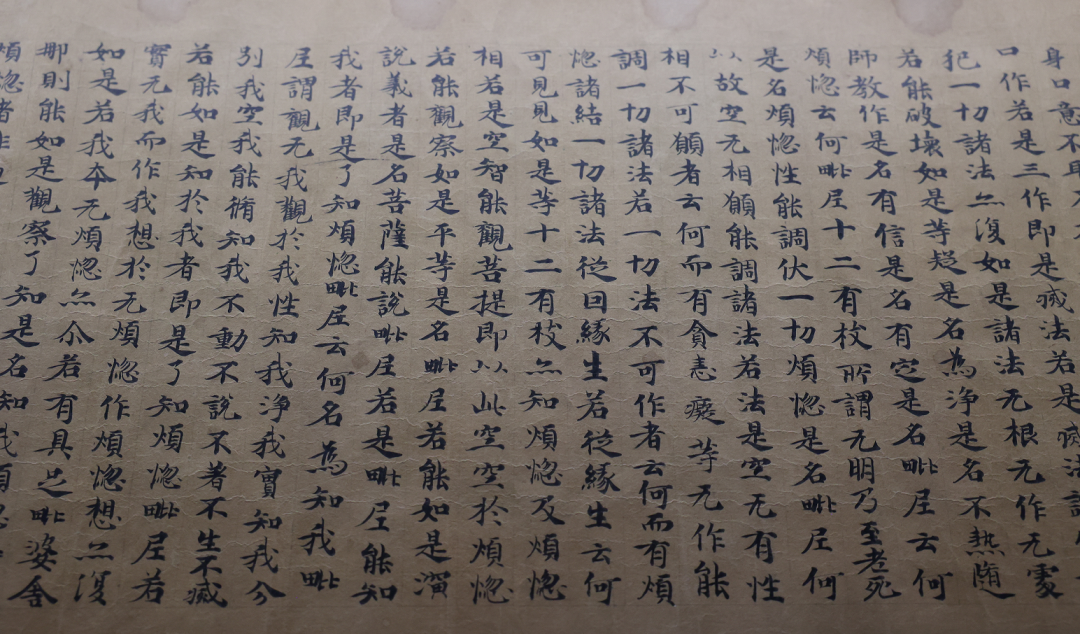 身口意不
口作若是三作即是滅法若是滅
犯一切諸法亦復如是諸法无根无作无處
若能破壞如是等疑是名為淨是名不熱隨
師教作是名有信是名有定是名毗尼云何
煩惱云何毗尼十二有枝所謂无明乃至老死
是名煩惱性能調伏一切煩惱是名毗尼何
以故空无相願能調諸法若法是空无有性
相不可願者云何而有貪恚癡等无作能
調一切諸法若一切法不可作者云何而有煩
惱諸結一切諸法從因緣生若從緣生云何
可見見如是等十二有枝亦知煩惱及煩惱
相若是空智能觀菩提即以此空空於煩惱
若能觀察如是平等是名毗尼若能如是演
說義者是名菩薩能說毗尼若是毗尼能知
我者即是了知煩惱毗尼云何名為知我毗
尼謂觀无我觀於我性知我淨我實知我今
別我空我能脩知我不動不說不著不生不滅
若能如是知於我者即是了知煩惱毗尼若
實无我而作我想於无煩惱作煩惱想亦復
如是若我本无煩惱亦尒若有具足毗婆舍
那則能如是觀察了知是名知我煩
煩惱者非